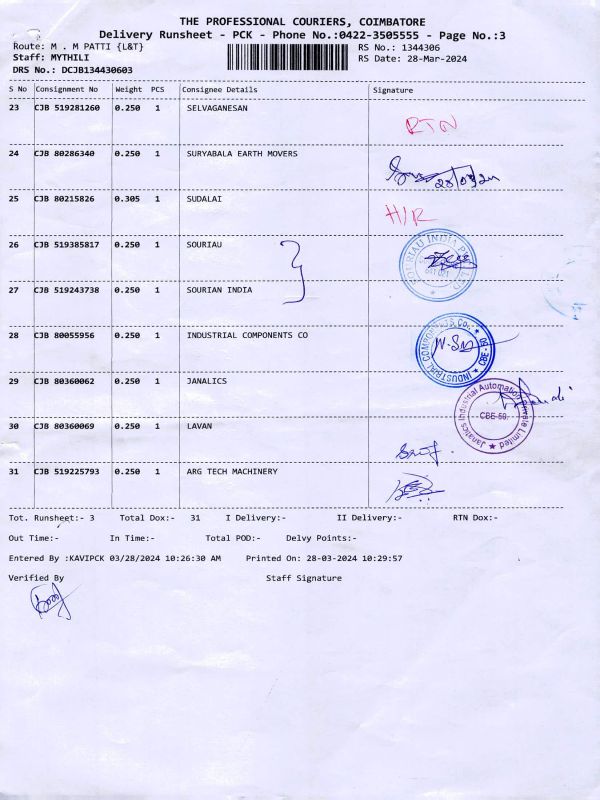 THE PROFESSIONAL COURIERS, COIMBATORE
Delivery Runsheet - PCK - Phone No.:0422-3505555 - Page No.:3
Route: M . M PATTI {L&T} RS No.: 1344306
Staff: MYTHILI RS Date: 28-Mar-2024
DRS No.: DCJB134430603
S No Consignment No Weight PCS Consignee Details Signature
23 CJB 519281260 0.250 1 SELVAGANESAN
RTN
24 CJB 80286340 0.250 1 SURYABALA EARTH MOVERS
25 CJB 80215826 0.305 1 SUDALAI
H/R
26 CJB 519385817 0.250 1 SOURIAU
SOURIAU INDIA
27 CJB 519243738 0.250 1 SOURIAN INDIA
28 CJB 80055956 0.250 1 INDUSTRIAL COMPONENTS CO
INDUSTRIAL COMPONENTS Co. CBE-
29 CJB 80360062 0.250 1 JANALICS
Janatics Industrial Automation India Limited
CBE-50.
30 CJB 80360069 0.250 1 LAVAN
31 CJB 519225793 0.250 1 ARG TECH MACHINERY
Tot. Runsheet:- 3 Total Dox:- 31 I Delivery:- II Delivery:- RTN Dox:-
Out Time:- In Time:- Total POD:- Delvy Points:-
Entered By :KAVIPCK 03/28/2024 10:26:30 AM Printed On: 28-03-2024 10:29:57
Verified By Staff Signature